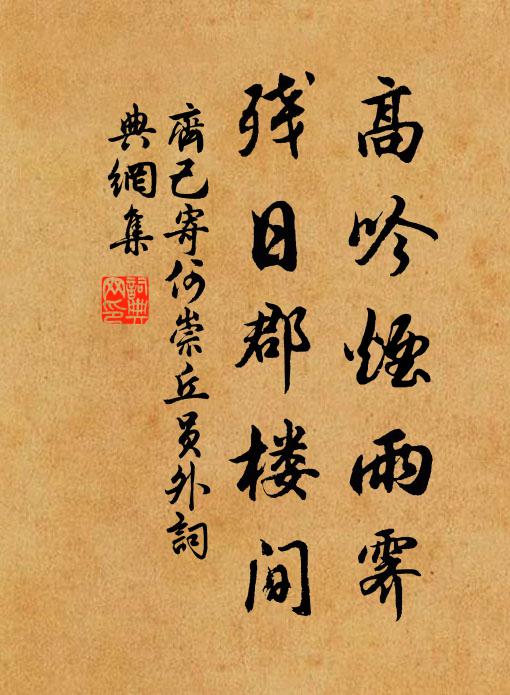 高吟煙雨霁
残日郡楼间
齊己寄何崇丘员外詞
典網集
詞典网印